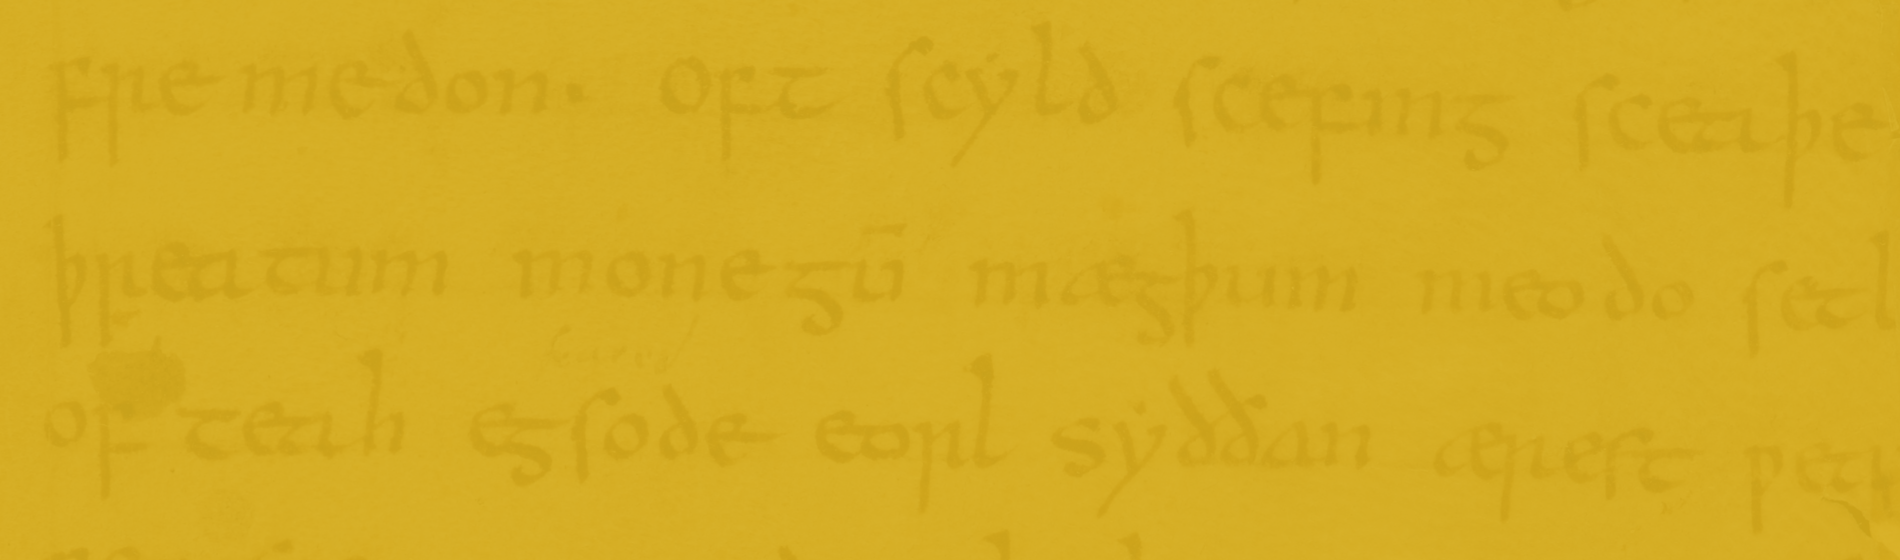 fremedon. Oft scyld scefing sceaþe
þreatum monegū mægþum meodo setl
ofteah egsode eorl syððan ærest wea